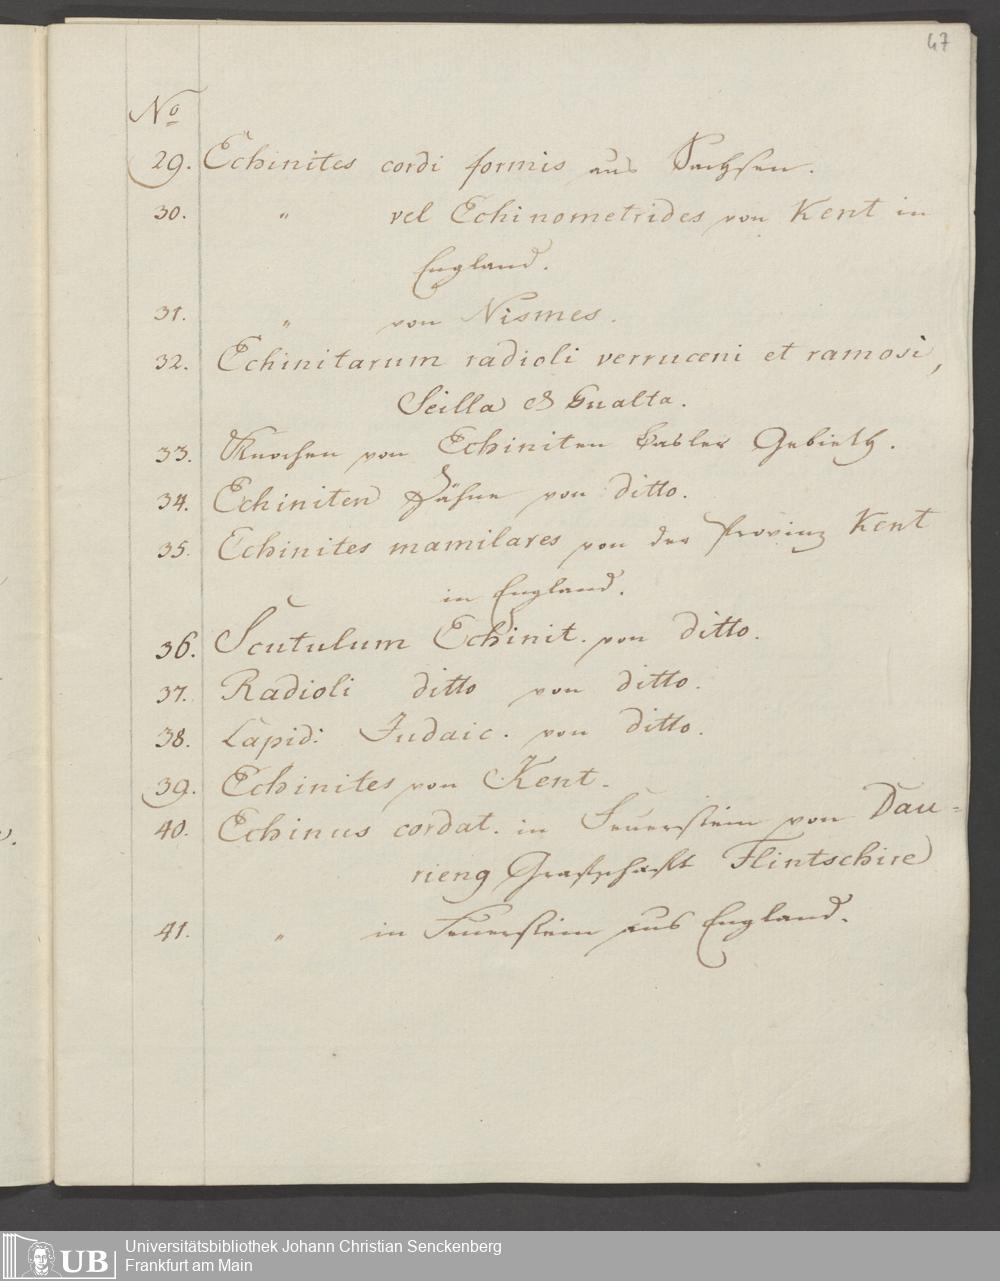 47
No
29. Echinites cordi formis aus Sachsen.
30. " vel Echinometrides von Kent in
England.
31. " von Nismes.
32. Echinitarum radioli verruceni et ramosi,
Scilla & Gualta.
33. Knochen von Echiniten Basler Gebieth.
34. Echiniten Zähne von ditto.
35. Echinites mamilares von der Provinz Kent
in England.
36. Scutulum Echinit. von ditto.
37. Radioli ditto von ditto.
38. Lapid: Judaic. von ditto.
39. Echinites von Kent.
40. Echinus cordat. in Feuerstein von Dau=
rieng Grafschaft Flintschire
41. " in Feuerstein aus England.
UB
Universitätsbibliothek Johann Christian Senckenberg
Frankfurt am Main